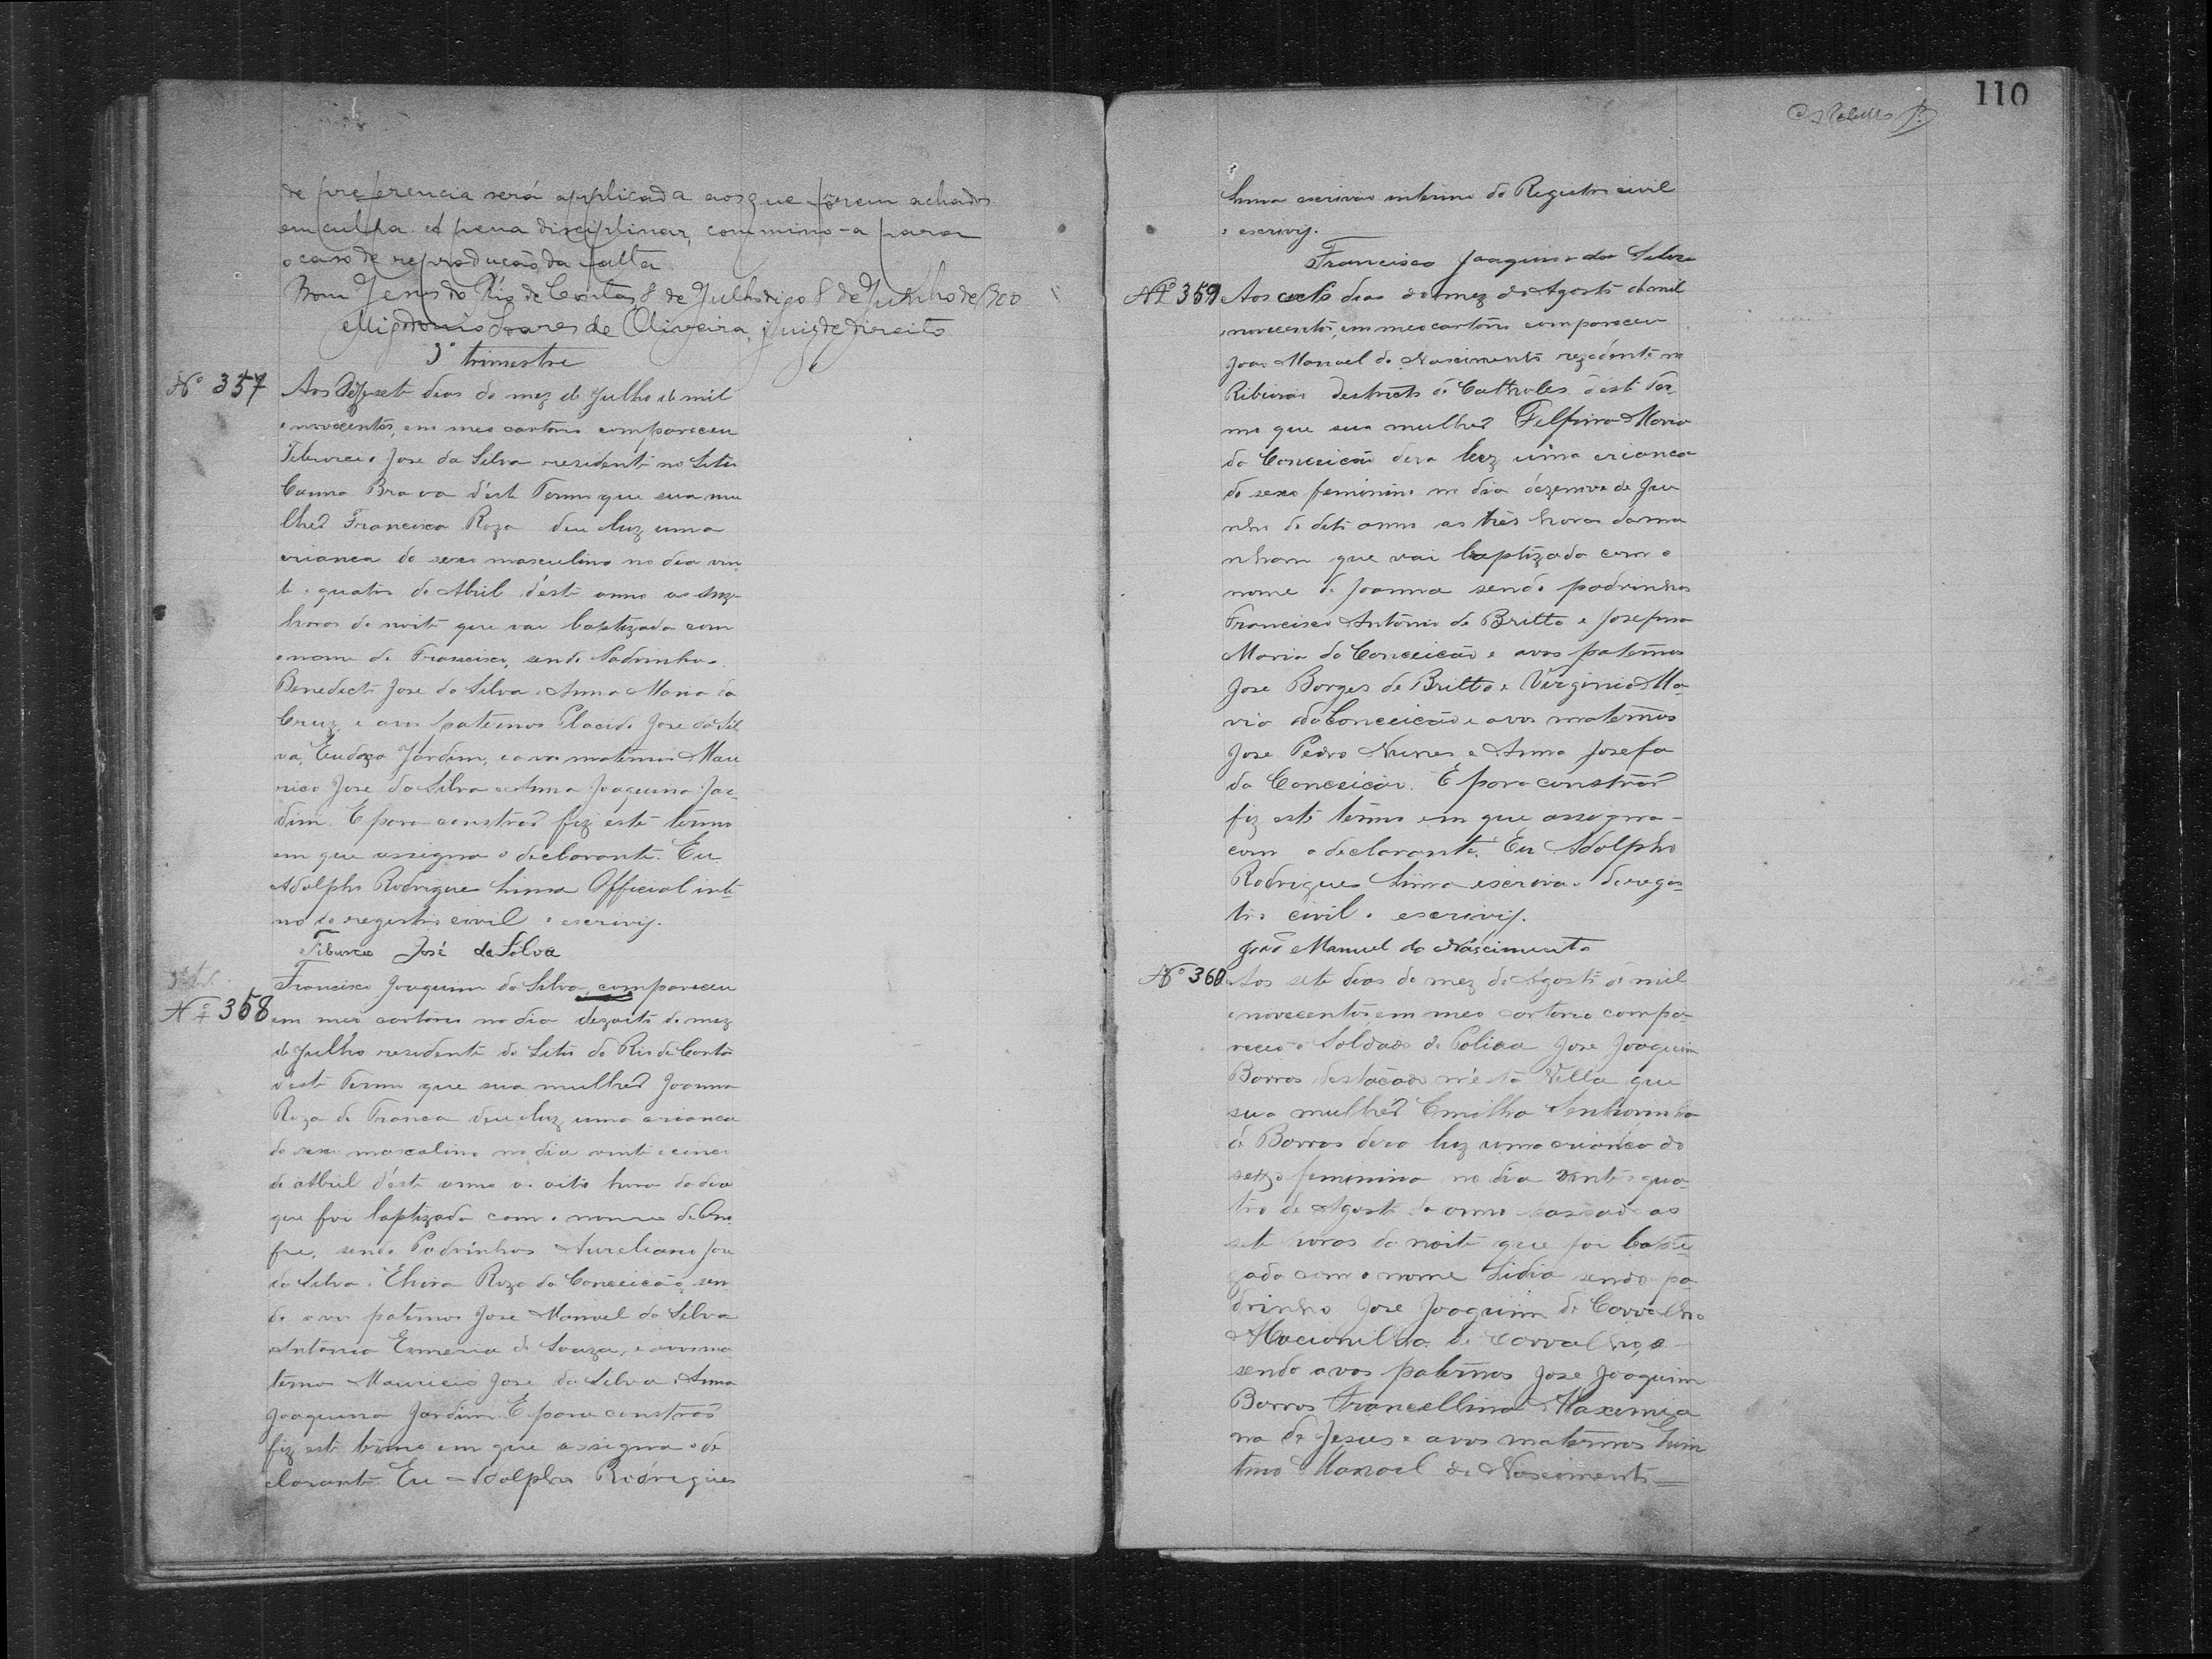 de preferencia será applicada aos que forem achados
em culpa. A pena disciplinar, commino-a para
o caso de reproducção da falta.
Bom Jesus do Rio de Contas, 8 de Julho digo 8 de Junho de 1900
Soares de Oliveira, juiz de direito
3º trimestre
Nº 357
Aos dezesete dias do mez de Julho de mil
e novecentos, em meo cartorio compareceu
Tiburcio Jose da Silva residente no Sitio
Canna Brava d'este Termo que sua mu
lher Francisca Roza deu a luz uma
crianca do sexo masculino no dia vin
te e quatro de Abril d'este anno as onze
horas da noite que vai baptizada com
o nome de Francisco, sendo Padrinhos
Benedicto Jose da Silva e Anna Maria da
Cruz, e avos paternos Placido Jose da Sil
va, Jardim, e avos maternos Mau
ricio Jose da Silva e Anna Joaquina Jar
dim. E para constar fiz este termo
em que assigna o declarante. Eu
Adolpho Rodrigues Lima Official inte
no do registro civil o escrivy.
Tiburcio José da Silva
Nº 358
Francisco Joaquim da Silva, compareceu
em meo cartorio no dia dezoito do mez
de Julho residente do Sitio do Rio de Contas
d'este Termo que sua mulher Joanna
Roza de Franca deu a luz uma crianca
do sexo masculino no dia vinte e cinco
de Abril d'este anno as oito hora do dia
que foi baptizada com o nome de Ono
fre, sendo Padrinhos Aureliano Jose
da Silva e Roza da Conceicão, sen
do avos paternos Jose Manoel da Silva
Antonia de Souza, e avos ma
ternos Mauricio Jose da Silva e Anna
Joaquina Jardim. E para constar
fiz este termo em que assigna o de
clarante. Eu Adolpho Rodrigues
110
Lima escrivão interino do Registro civil
o escrivy.
Francisco Joaquim da Silva
Nº 359
Aos seis dias do mez de Agosto de mil
e novecentos, em meo cartorio compareceu
João Manoel do Nascimento rezidente no
Ribeirão destricto de Catholes d'este ter
mo que sua mulher Felpina Maria
da Conceicão dera luz uma crianca
do sexo feminino no dia dezenove de Ju
nho do dito anno as três horas da ma
nham que vai baptizada com o
nome de Joanna sendo padrinhos
Francisco Antonio de Britto e Josepina
Maria da Conceicão e avos paternos
Jose Borges de Britto e Virginia Ma
ria da Conceicão e avos maternos
Jose Pedro Nunes e Anna Josefa
da Conceicão. E para constar
fiz este termo em que assigna
com o declarante. Eu Adolpho
Rodrigues Lima escrivão do regis
tro civil o escrivy.
João Manuel do Nascimento
Nº 360
Aos sete dias do mez de Agosto de mil
e novecentos, em meo cartorio compa
receo o Soldado de Policia Jose Joaquim
Barros destacado n'esta Villa que
sua mulher Emilha Senhorinha
de Barros dera luz uma crianca do
sexo feminino no dia vinte e qua
tro de Agosto do anno passado as
sete horas da noite que foi bapti
zada com o nome Lidia sendo pa
drinho Jose Joaquim de Carvalho
de Carvalho, e
sendo avos paternos Jose Joaquim
Barros Francellina Maximia
na de Jesus e avos maternos
Manoel do Nascimento